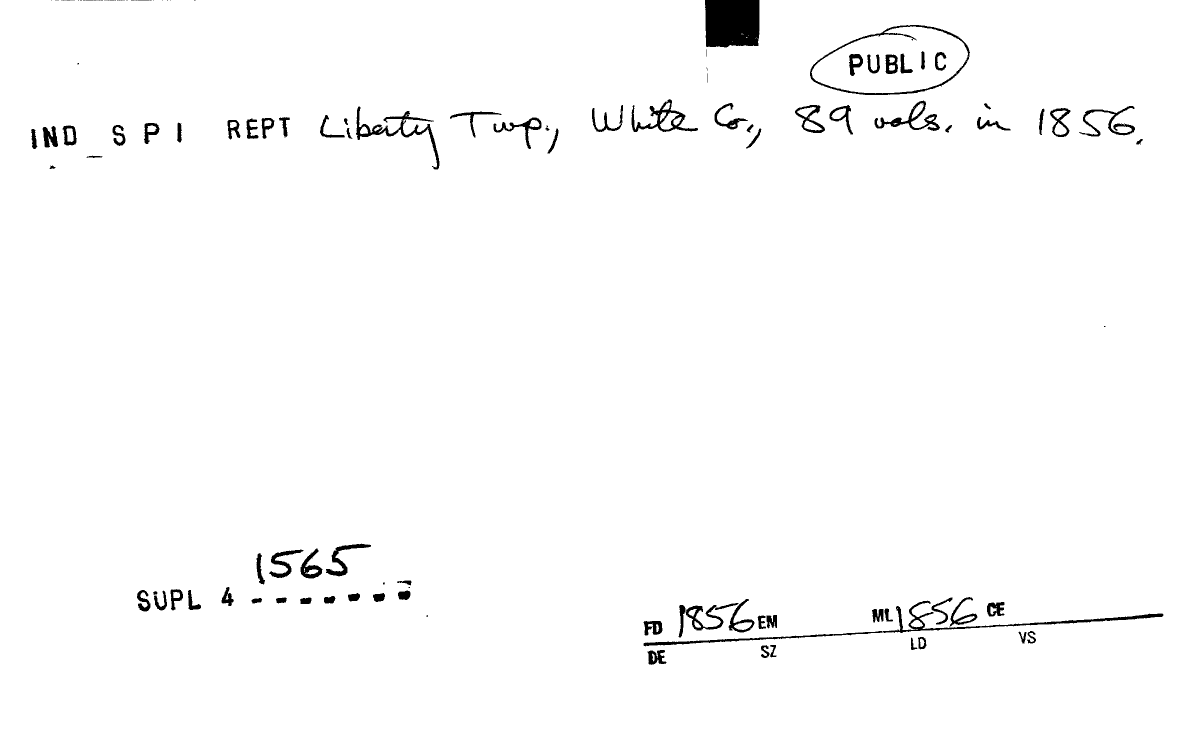 PUBLIC
IND S P I REPT Liberty Twp., White Co., 89 vols. in 1856.
1565
SUPL 4 -------
FD 1856 EM ML 1856 CE
DE SZ LD VS